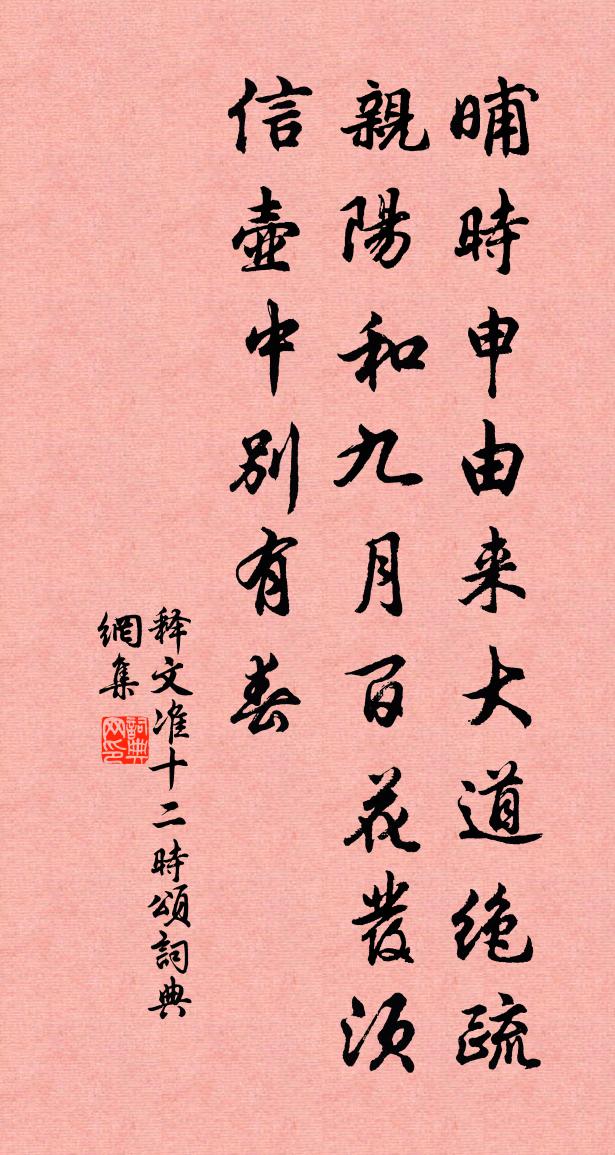 晡時申由来大道绝疏
親陽和九月百花發须
信壺中别有春
释文准十二時頌詞典
網集
詞典網印